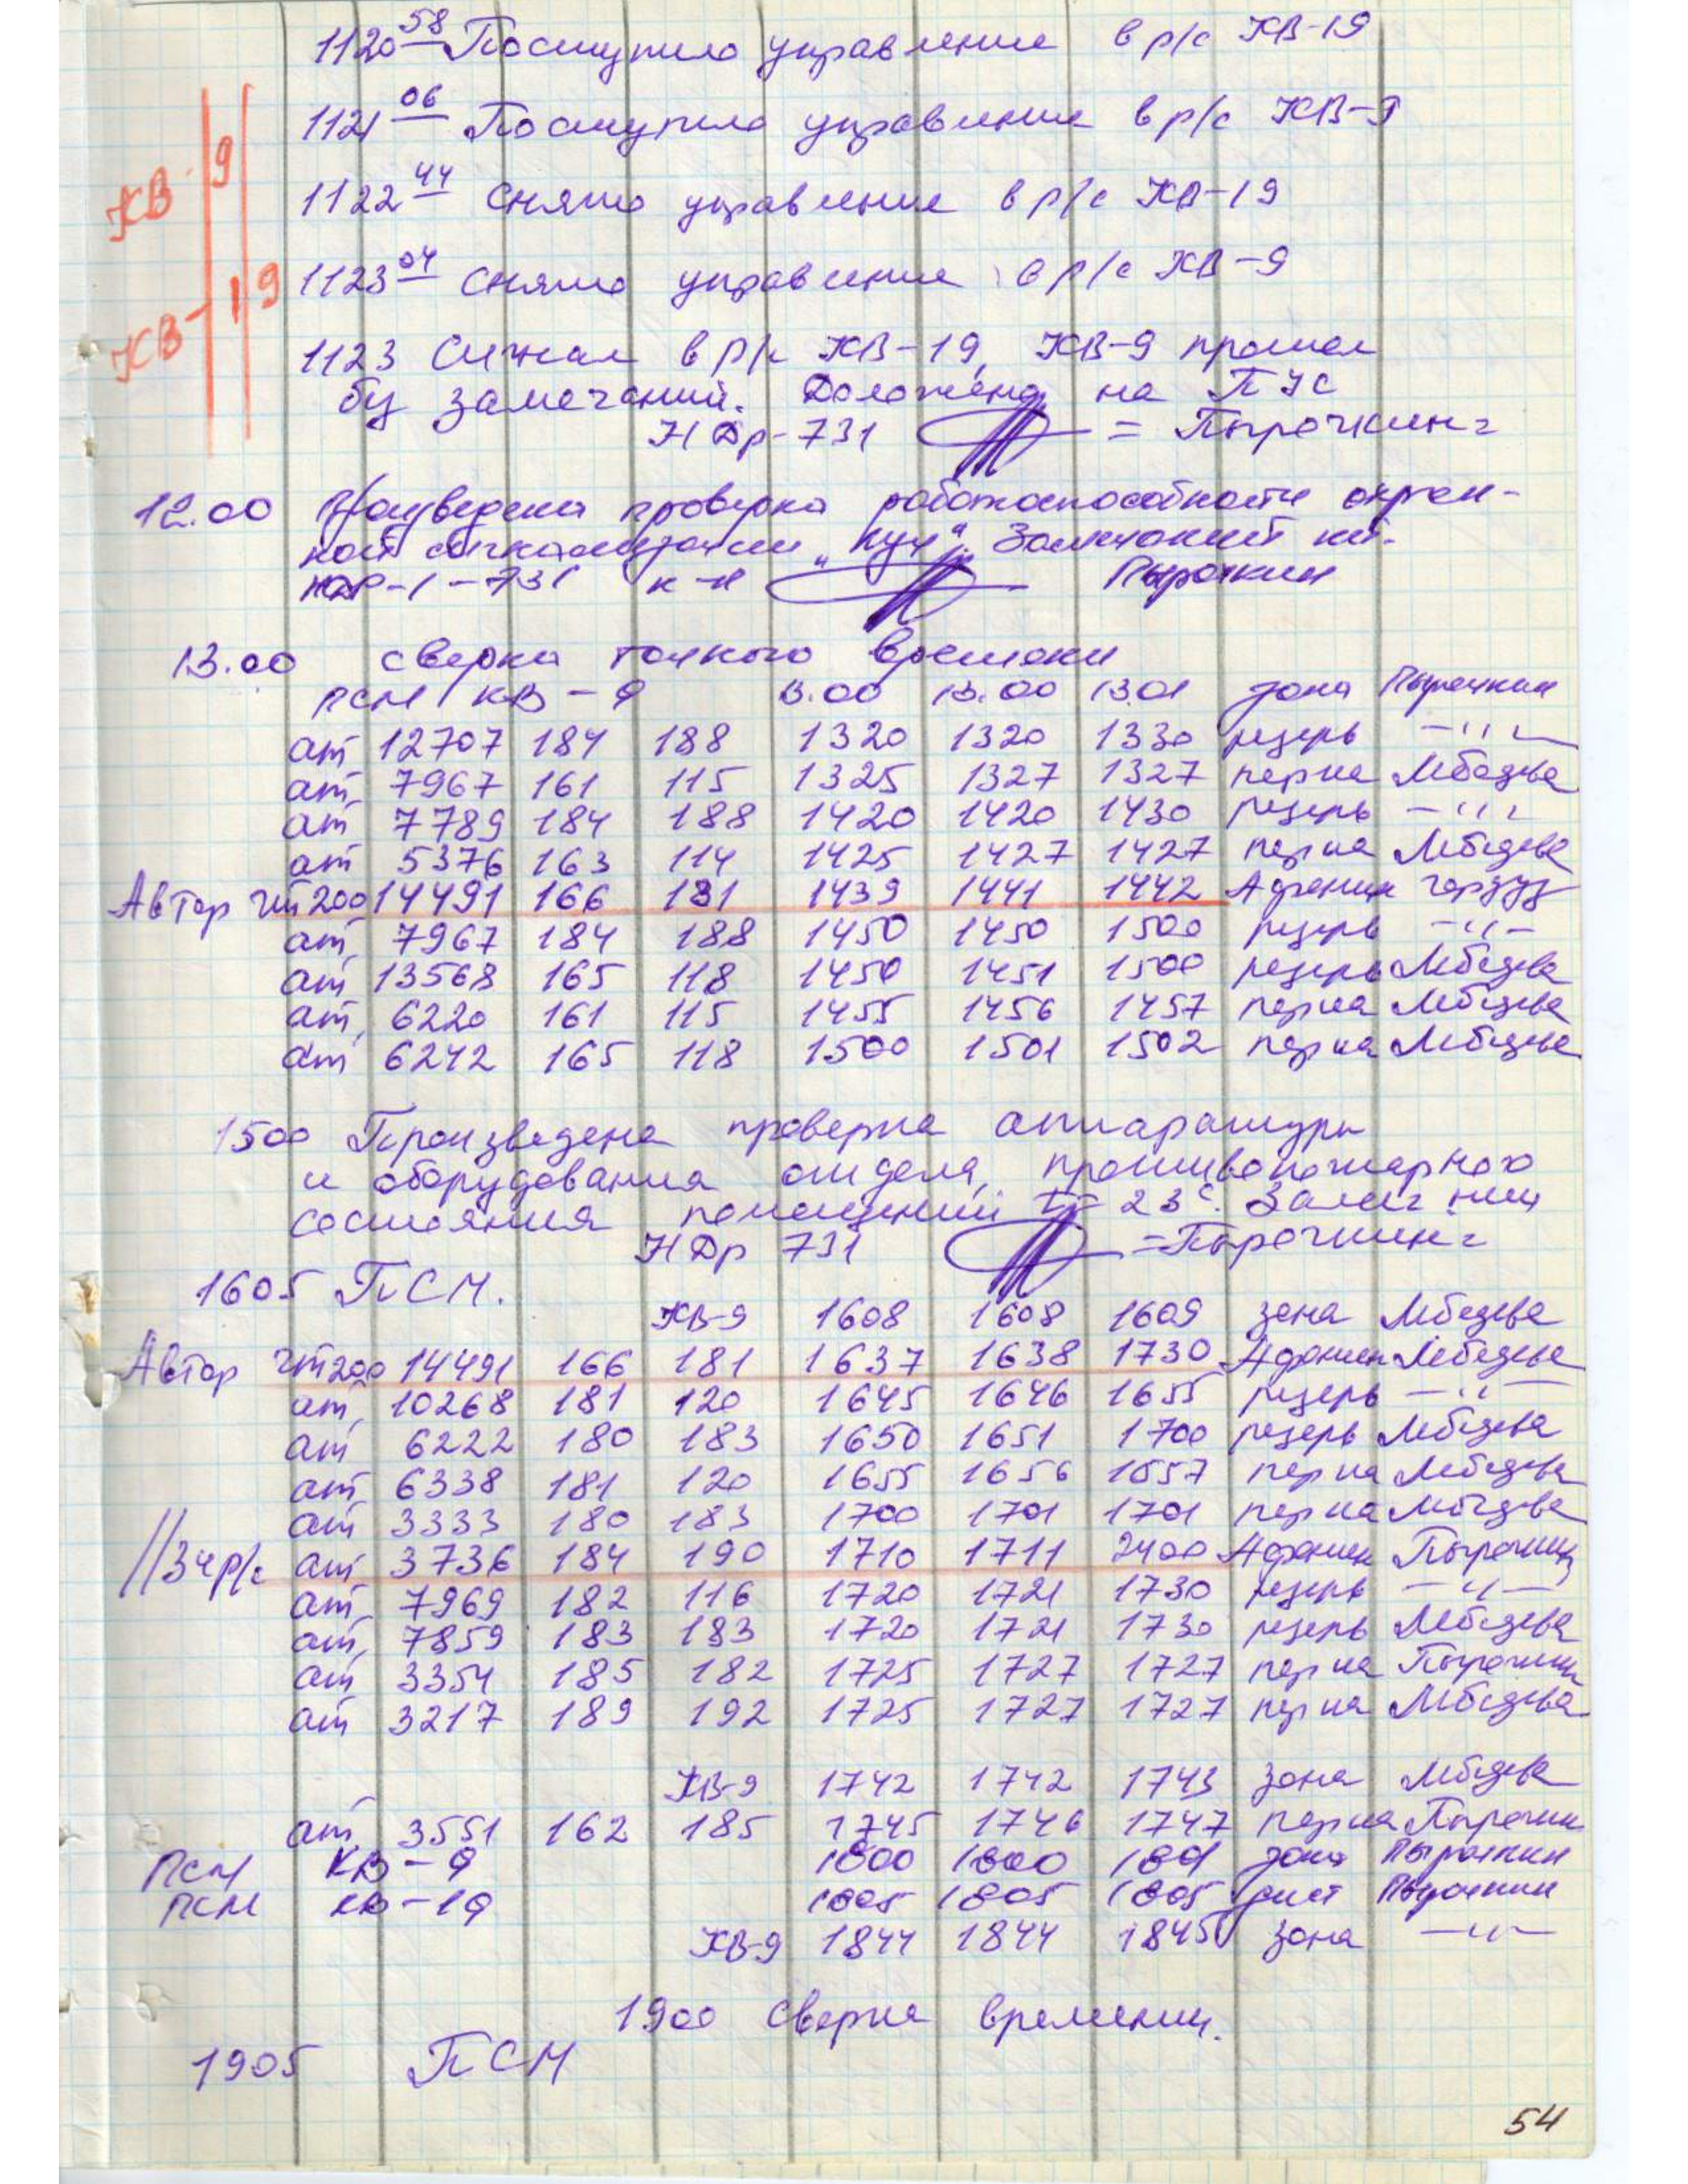 1120 58 Поступило управление в р/с КВ-19
1121 06 Поступило управление в р/с КВ-9
КВ-9
1122 44 Снято управление в р/с КВ-19
1123 04 Снято управление в р/с КВ-9
КВ-19
1123 Сигнал в р/с КВ-19, КВ-9 прошел
без замечаний. Доложено на ПУС
НДр-731 = Пырочкин =
12.00 Произведена проверка работоспособности охран-
ной сигнализации „Луч“. Замечаний нет.
НДР-1-731 к-н Пырочкин
13.00 сверка точного времени
ПСМ КВ-9 13.00 13.00 13.01 зона Пырочкин
ат 12707 184 188 1320 1320 1330 резерв —〃—
ат 7967 161 115 1325 1327 1327 перна Лебедева
ат 7789 184 188 1420 1420 1430 резерв —〃—
ат 5376 163 114 1425 1427 1427 перна Лебедева
Автор чт200 14491 166 181 1439 1441 1442 Афонин
ат 7967 184 188 1450 1450 1500 резерв —〃—
ат 13568 165 118 1450 1451 1500 резерв Лебедева
ат 6220 161 115 1455 1456 1457 перна Лебедева
ат 6242 165 118 1500 1501 1502 перна Лебедева
1500 Произведена проверка аппаратуры
и оборудования отдела, противопожарного
состояния помещений t= 23°. Замеч. нет
НДр 731 = Пырочкин =
1605 ПСМ.
КВ-9 1608 1608 1609 зона Лебедева
Автор чт200 14491 166 181 1637 1638 1730 Афонин Лебедева
ат 10268 181 120 1645 1646 1655 резерв —〃—
ат 6222 180 183 1650 1651 1700 резерв Лебедева
ат 6338 181 120 1655 1656 1657 перна Лебедева
ат 3333 180 183 1700 1701 1701 перна Лебедева
//3чр/с ат 3736 184 190 1710 1711 2400 Афонин Пырочкин
ат 7969 182 116 1720 1721 1730 резерв —〃—
ат 7859 183 183 1720 1721 1730 резерв Лебедева
ат 3354 185 182 1725 1727 1727 перна Пырочкин
ат 3217 189 192 1725 1727 1727 перна Лебедева
КВ-9 1742 1742 1743 зона Лебедева
ат 3551 162 185 1745 1746 1747 перна Пырочкин
ПСМ КВ-9 1800 1800 1801 зона Пырочкин
ПСМ КВ-19 1805 1805 1805 лист Пырочкин
КВ-9 1844 1844 1845 зона —〃—
1900 Сверка времени.
1905 ПСМ
54